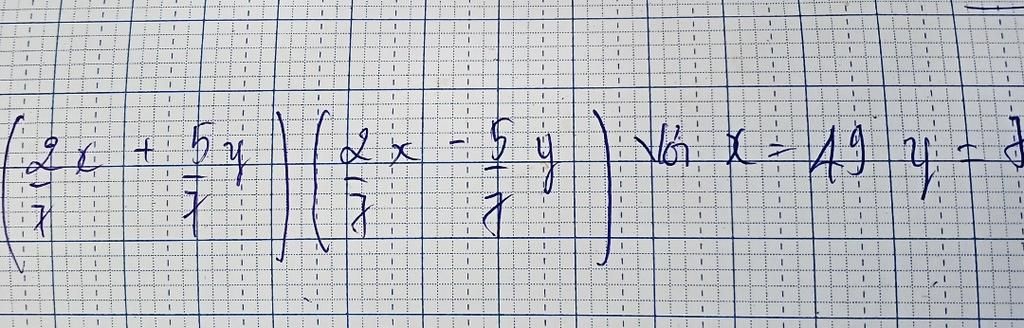 (2/7 x + 5/7 y) (2/7 x - 5/7 y) Với x = 49 y = 7